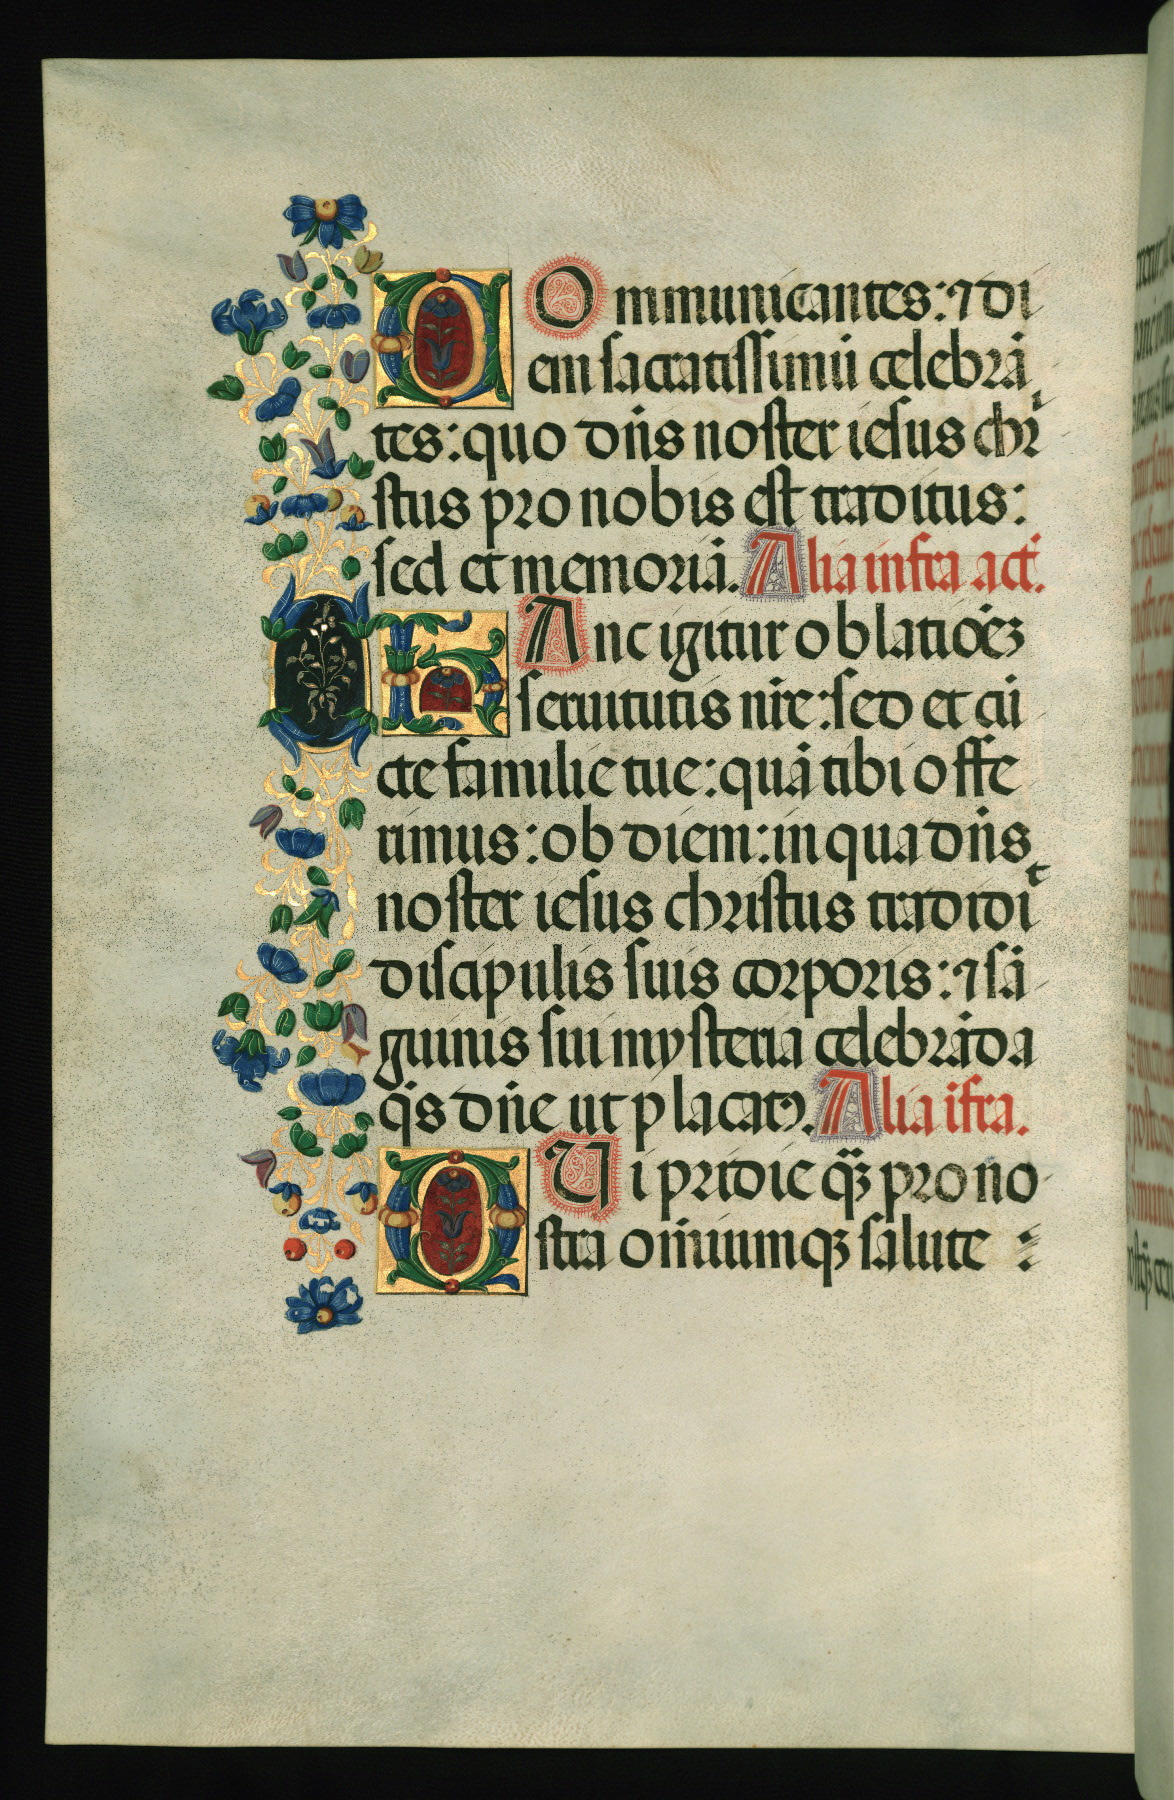 COmmunicantes: ⁊ di
em sacratissimū celebrā
tes: quo dn̄s noster iesus chrī
stus pro nobis est traditus:
sed et memoriā. Alia infra act̄.
HAnc igitur oblatiōēꝫ
seruitutis nr̄e: sed et cū
cte familie tue: quā tibi offe
rimus: ob diem: in qua dn̄s
noster iesus christus tradidit
discipulis suis corporis: ⁊ sā
guinis sui mysteria celebrāda
q̄s dn̄e ut placatꝰ. Alia īfra.
QUi pridie qꝫ pro no
stra om̄iumqꝫ salute :